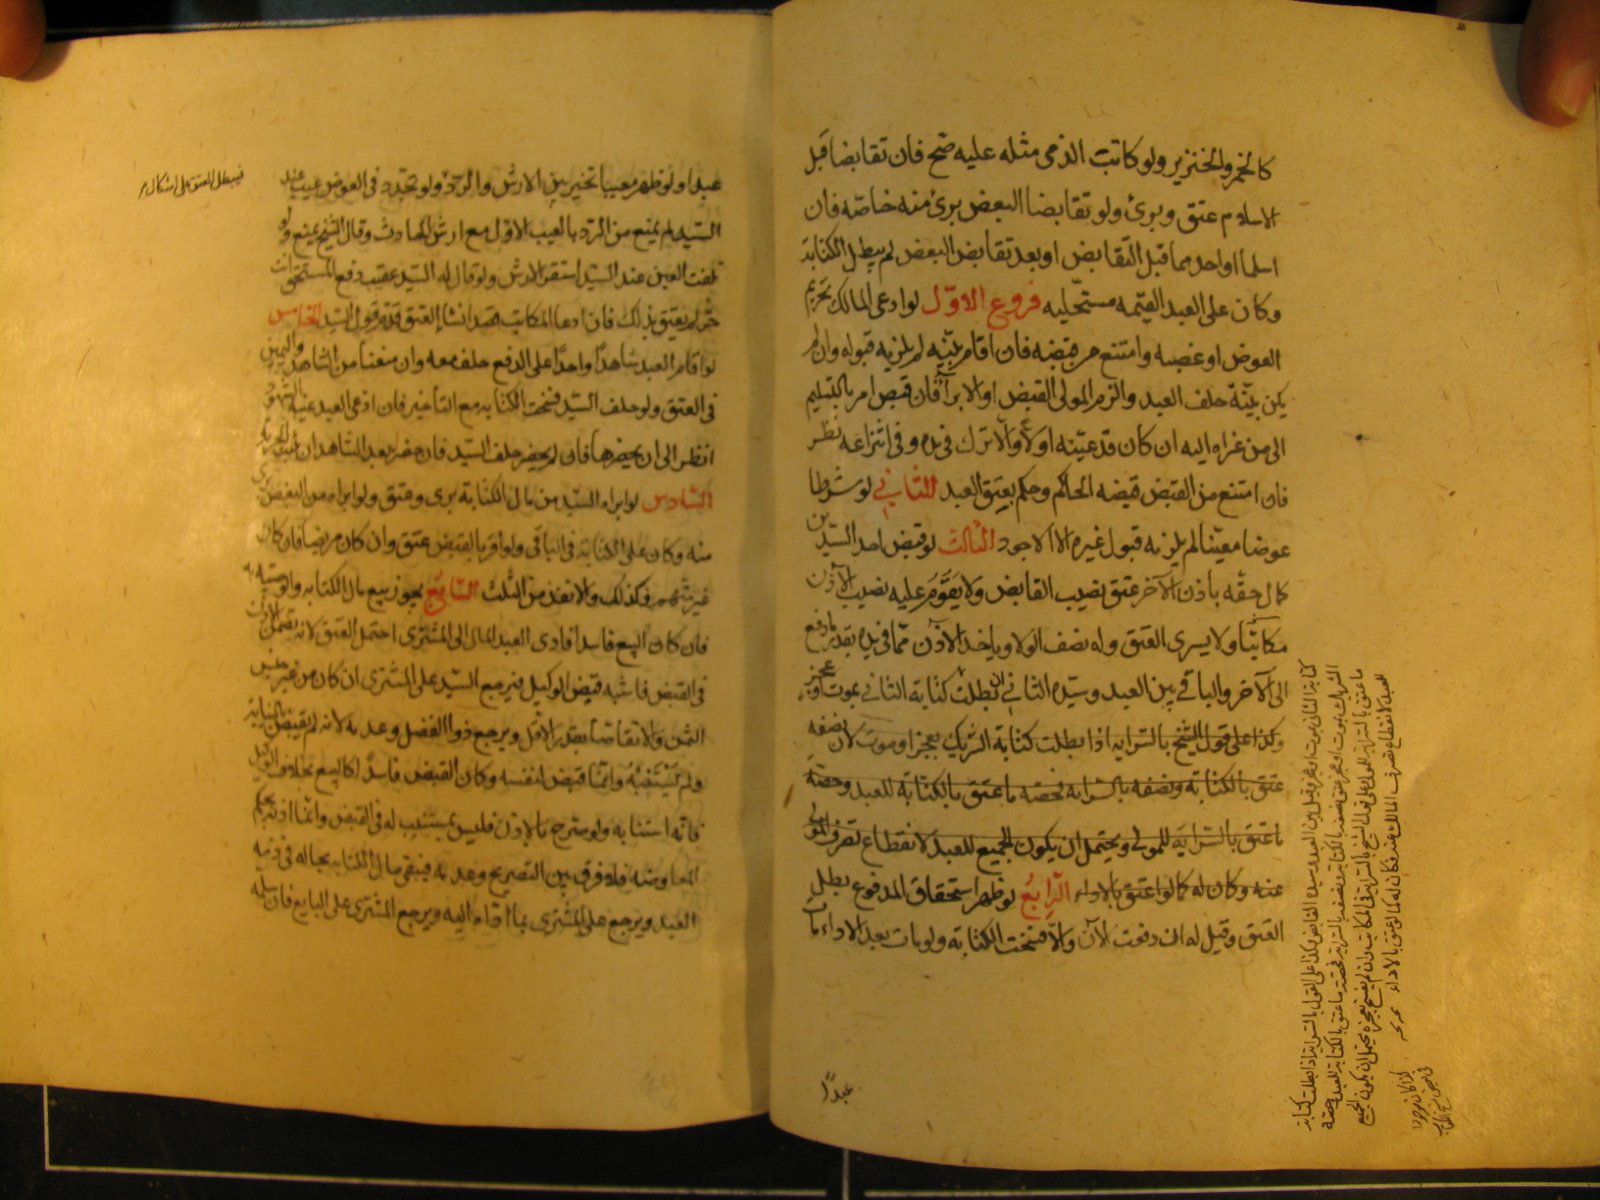 كالخمر والخنزير ولو كاتب الذمى مثله عليه صح فان تقابضا قبل
الاسلام عتق وبرئ ولو تقابضا البعض برئ منه خاصّه فان
اسلما او احدهما قبل التقابض او بعد تقابض البعض لم يبطل الكتابة
وكان على العبد القيمه مستحليه فروع الاوّل لو ادعى المالك تحريم
العوض او غصبه وامتنع من قبضه فان اقام بيّنه لم يلزمه قبوله وان لم
يكن بيّنة حلف العبد والزم المولى القبض او الابراء فان قبض امر بالتسليم
الى من عزاه اليه ان كان قد عيّنه اولا والّا ترك فى يده وفى انتزاعه نظر
فان امتنع من القبض قبضه الحاكم وحكم بعتق العبد الثانى لو شرطا
عوضا معيّنا لم يلزمه قبول غيره الا الاجود الثالث لو قبض احد السيّدين
كمال حقّه باذن الآخر عتق نصيب القابض ولا يقوّم عليه نصيب الآذن
مكاتبًا ولا يسرى العتق وله نصف الولا وياخذ الاذن ممّا فى يده بقدر ما دفع
الى الآخر والباقى بين العبد وسيّده الثانى ان بطلت كتابة الثانى بموت او عجز
وكذا على قول الشيخ بالسرايه اذا بطلت كتابة الشريك بعجز او موت لان نصفه
عتق بالكتابة ونصفه بالسرايه فحصّه ما عتق بالكتابة للعبد وحصّة
ما عتق بالسرايه للمولى ويحتمل ان يكون الجميع للعبد لانقطاع تصرف المولى
عنه وكان له كما لو عتق بالاداء الرّابع لو ظهر استحقاق المدفوع بطل
العتق وقيل له ان دفعت الآن والّا فسخت الكتابة ولو مات بعد الاداء مات
عبدًا
كتابة الثانى بموت او عجز وقيل بين العبد وسيده القابض وكذا على القول بالسراية اذا بطلت كتابة
الشريك بموت او عجز عتق نصفه بالكتابة ونصفه بالسراية فحصّة ما عتق بالكتابة للعبد وحصّة
ما عتق بالسراية للمولى على قول الشيخ بالسراية فى المكاتب وان لم يفسخ بعجزه يحتمل ان يكون الجميع
للعبد لانقطاع تصرف المالك عنه فكان له كما لو عتق بالاداء
كذا كان موجودا
فى بعض نسخ الكتاب
عبدا ولو ظهر معيبا تخير بين الارش والرّد ولو تجدّد فى العوض عيب عند
السيّد لم يمنع من الرد بالعيب الاوّل مع ارش الحادث وقال الشيخ يمنع ولو
تلفت العين عند السيّد استقر الارش ولو قال له السيد عقيب دفع المستحق انت
حرّ لم يعتق بذلك فان ادعا المكاتب قصد انشاء العتق قدّم قول السيّد الخامس
لو اقام العبد شاهدًا واحدًا على الدفع حلف معه وان منعنا من الشاهد واليمين
فى العتق ولو حلف السيّد فسخت الكتابه مع التأخير فان ادّعى العبد غيبة الشهود
انظر الى ان يحضرها فان لم يحضر حلف السيّد فان حضر بعد الشاهدان ثبت الحرية
السّادس لو ابراء السيّد من مال الكتابة برى وعتق ولو ابراه من البعض برى
منه وكان على الكتابة فى الباقى ولو اقر بالقبض عتق وان كان مريضا فان كان
غير متّهم فكذلك والا نفذ من الثلث السّابع يجوز بيع مال الكتابه والوصيّه به
فان كان البيع فاسدا فادى العبد المال الى المشترى احتمل العتق لانه تضمّن الاذن
فى القبض فاشبه قبض الوكيل فيرجع السيّد على المشترى ان كان من غير جنس
الثمن والا تقاصّا بقدر الاقل ويرجع ذوا الفضل وعدمه لانه لم يقبض بالنيابة
ولم يستنبه وانّما قبض لنفسه وكان القبض فاسدًا كالبيع بخلاف الوكيل
فانّه استنابه ولو صرّح بالاذن فليس بمستنيب له فى القبض وانّما اذنه بحكم
المعاوضه فلا فرق بين التصريح وعدمه فيبقى مال الكتابه بحاله فى ذمّه
العبد ويرجع على المشترى بما أدّاه اليه ويرجع المشترى على البايع فان سلّمه
فيبطل العتق على اشكال م